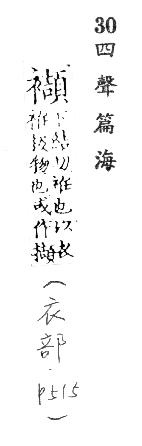 30 四聲篇海
襭 下結切袵也以衣
袵扱物也或作擷
(衣部 p515)